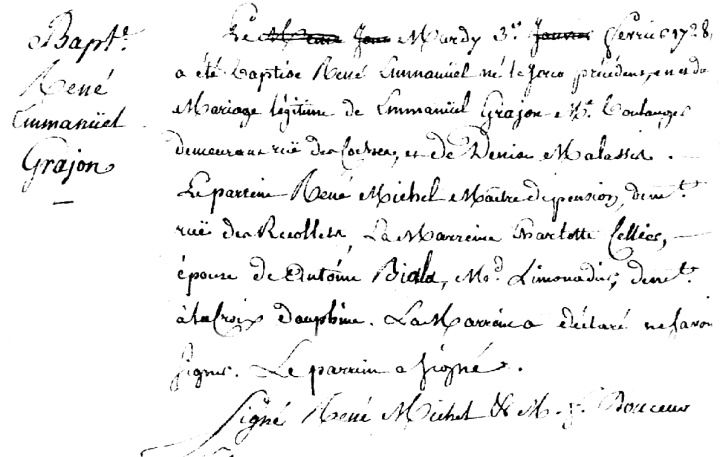 Bapt.e
René
Emmanüel
Grajon
Le Mardy 3.e fevrier
a été baptisé René Emmanüel né le jour précédent, en et du
Mariage légitime de Emmanüel Grajon M.e Boulanger
demeurant rüe des et de Denise Malassis.
Le parrein René Michel Maître de pension, dem.t
rüe des Recollets, La Marreine Charlotte Cellier,
épouse de Antoine Biala, M.d Limonadier, dem.t
à la Croix dauphine. La Marreine a déclaré ne savoir
signer. Le parrein a signé.
Signé René Michel & M. f. Douceur